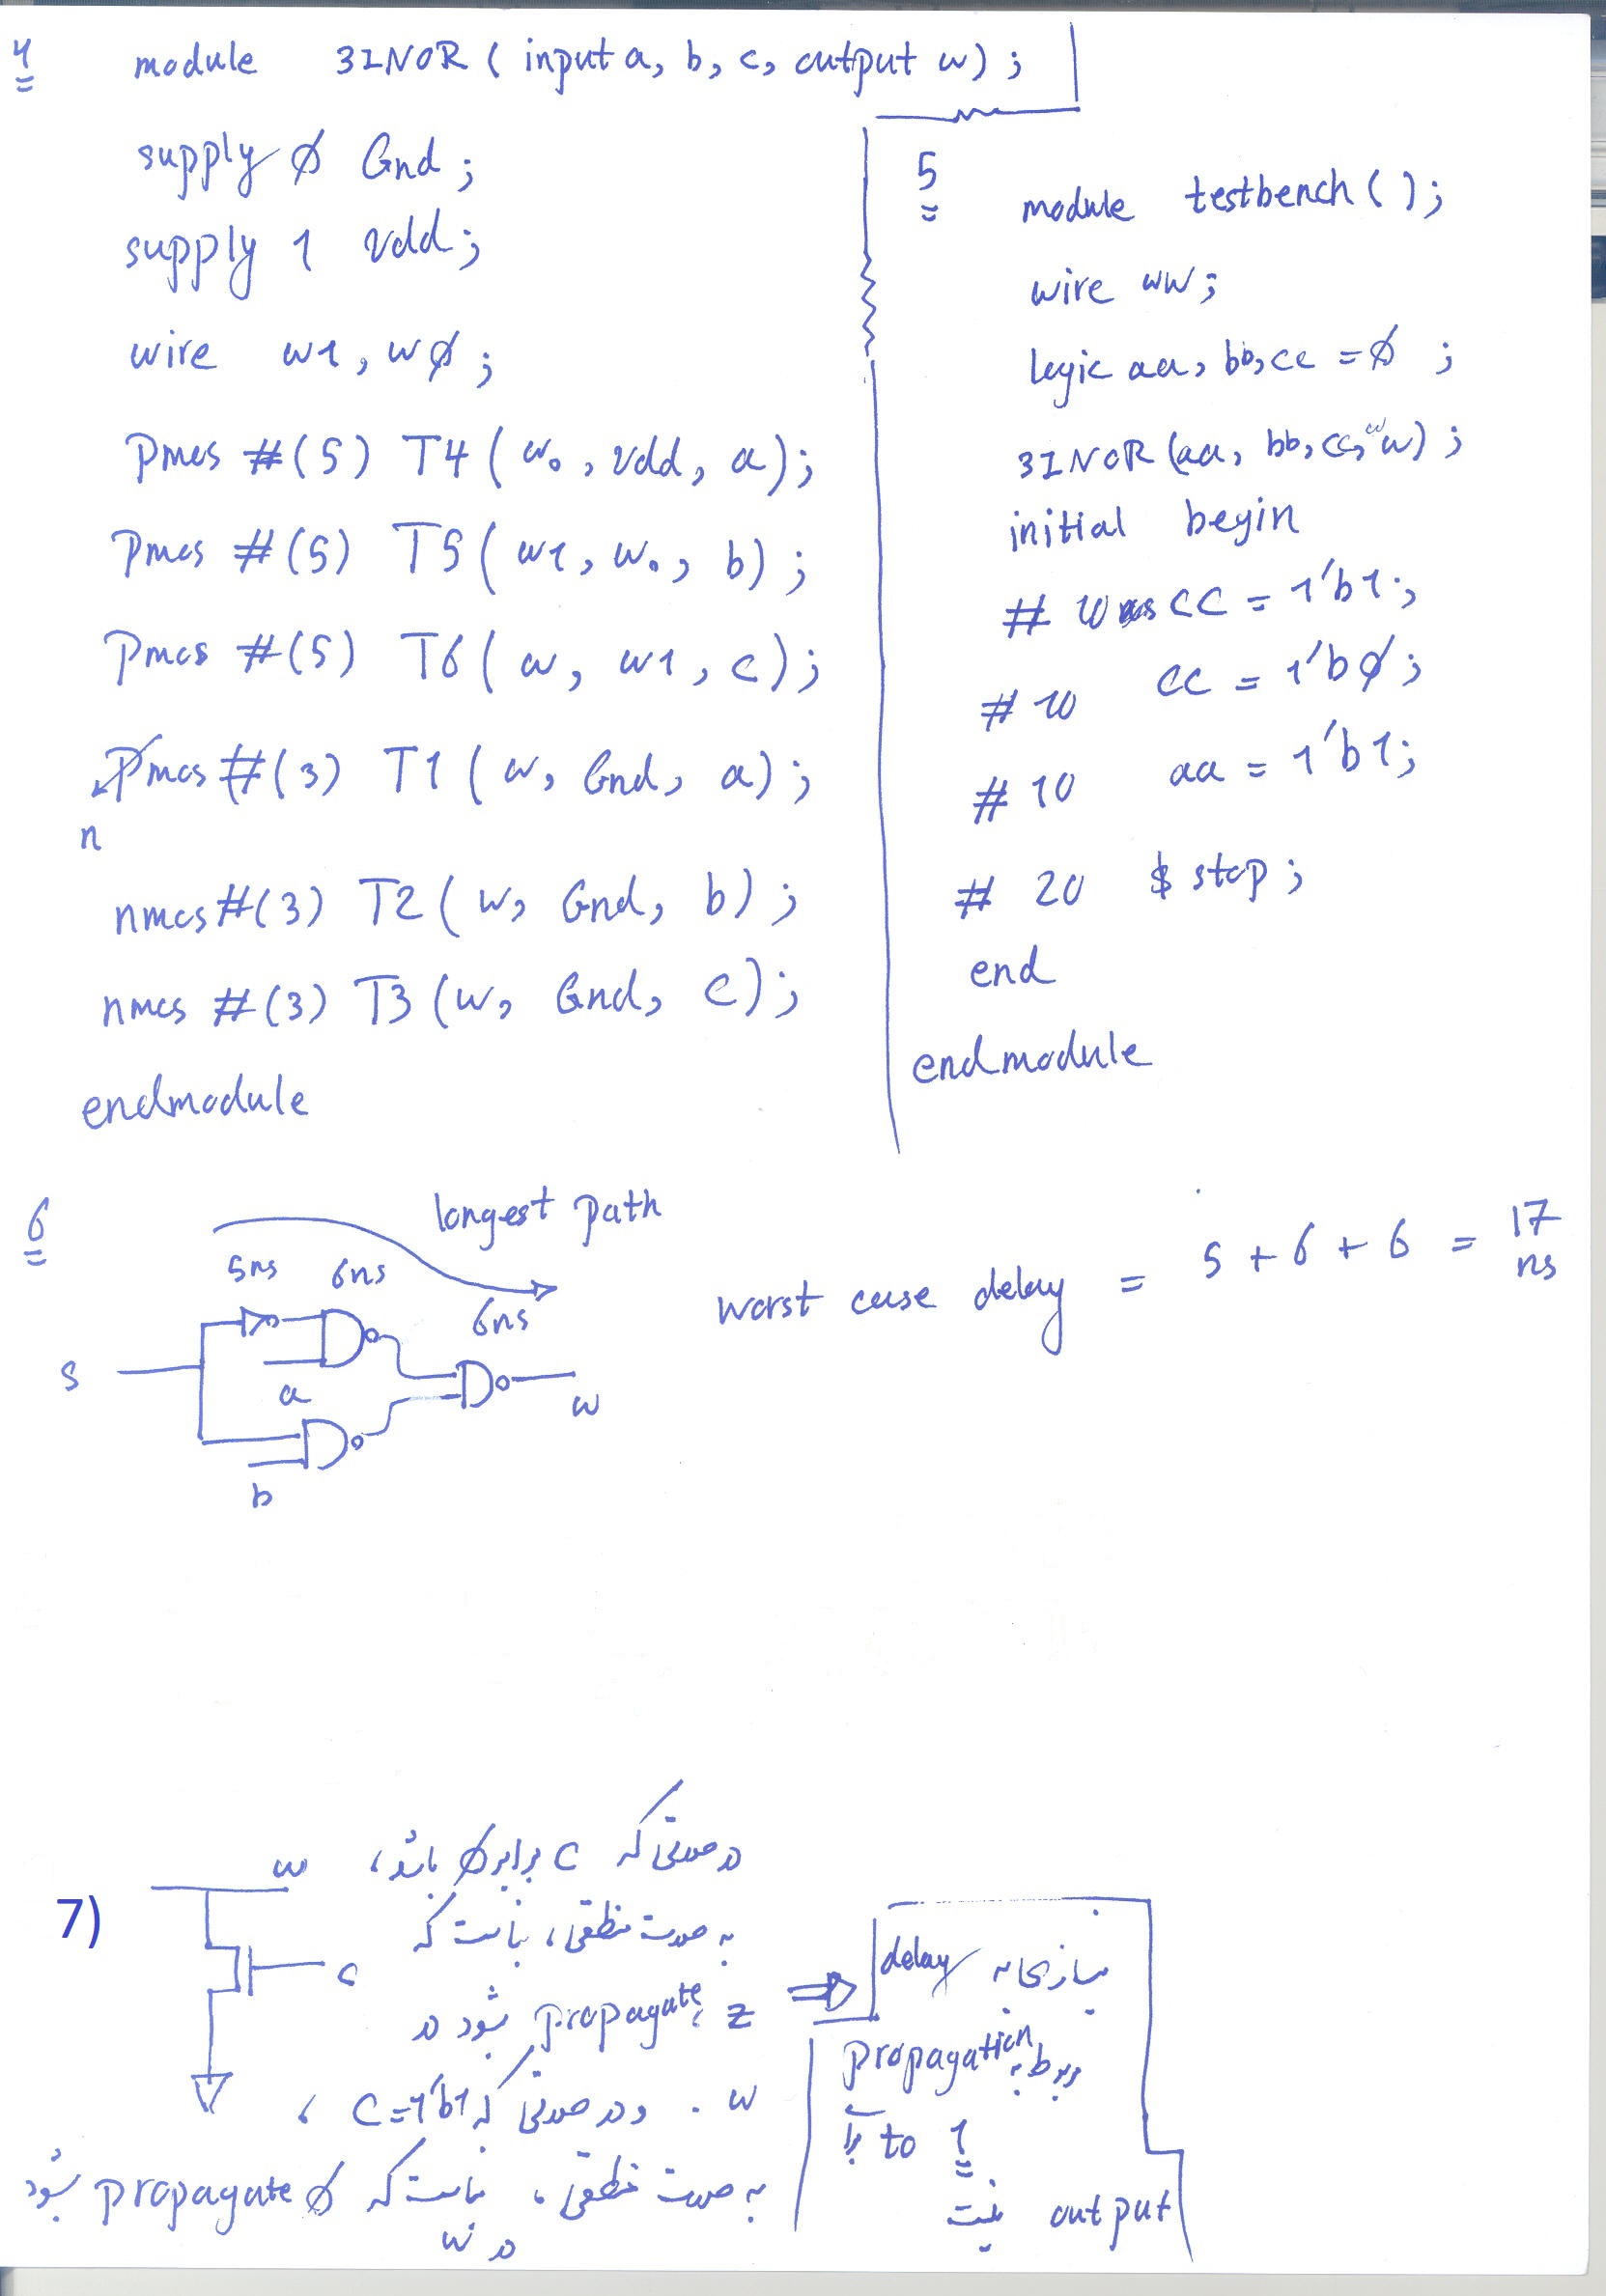 4
module 3INOR ( input a, b, c, output w) ;
supply 0 Gnd ;
supply 1 vdd ;
wire w1, w0 ;
Pmos #(5) T4 ( w0 , vdd, a) ;
Pmos #(5) T5 ( w1, w0, b) ;
Pmos #(5) T6 ( w, w1, c) ;
Pmos #(3) T1 ( w, Gnd, a) ;
n
nmos #(3) T2 ( w, Gnd, b) ;
nmos #(3) T3 (w, Gnd, c) ;
endmodule
5
module testbench ( ) ;
wire ww ;
logic aa, bb, cc = 0 ;
3INOR (aa, bb, cc, ww) ;
initial begin
# 10 cc = 1'b1 ;
# 10 cc = 1'b0 ;
# 10 aa = 1'b1 ;
# 20 $ stop ;
end
endmodule
6
longest path
5ns 6ns
6ns
s
a
w
b
worst case delay = 5 + 6 + 6 = 17 ns
7)
w
c
در صورتی که c برابر 0 باشد،
به صورت منطقی، نیاست که
z، propagate شود در
w . و در صورتی که c=1'b1 ،
به صورت منطقی، نیاست که 0 propagate شود
در w
نیازی به delay
propagation
مربوط به
to 1 را
output نیست